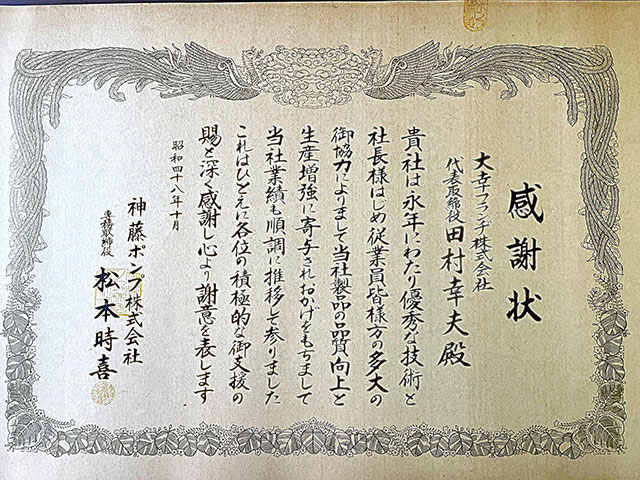 感謝状
大幸フランヂ株式会社
代表取締役 田村幸夫殿
貴社は永年にわたり優秀な技術と
社長様はじめ従業員皆様方の多大の
御協力によりまして当社製品の品質向上と
生産増強に寄与されおかげをもちまして
当社業績も順調に推移して参りました
これはひとえに各位の積極的な御支援の
賜と深く感謝し心より謝意を表します
昭和四十八年十月
神藤ポンプ株式会社
専務取締役 松本時喜